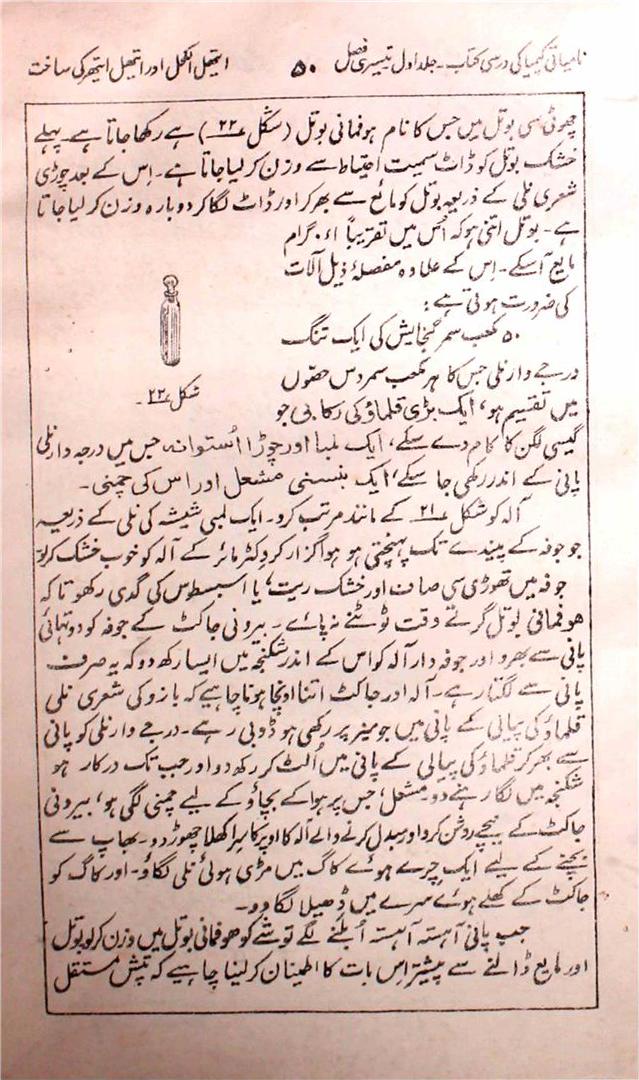 نامیاتی کیمیا کی درسی کتاب - جلد اول تیسری فصل ۵۰ ایتھل الکحل اور ایتھل ایتھر کی ساخت
چھوٹی سی بوتل میں جس کا نام ہوفمانی بوتل (شکل ۲۲) ہے رکھا جاتا ہے۔ پہلے
خشک بوتل کو ڈاٹ سمیت احتیاط سے وزن کر لیا جاتا ہے۔ اِس کے بعد چوڑی
شعری نلی کے ذریعہ بوتل کو مائع سے بھر کر اور ڈاٹ لگا کر دوبارہ وزن کر لیا جاتا
ہے۔ بوتل اتنی ہو کہ اُس میں تقریباً ۱ء۰ گرام
مایع آ سکے۔ اِس کے علاوہ مفصلۂ ذیل آلات
کی ضرورت ہوتی ہے:
۵۰ مکعب سمر گنجایش کی ایک تنگ
درجے وار نلی جس کا ہر مکعب سمر دس حصّوں
شکل ۲۲۔
میں تقسیم ہو، ایک بڑی قلماؤ کی رکابی جو
گیسی لگن کا کام دے سکے، ایک لمبا اور چوڑا اُستوانہ جس میں درجہ دار نلی
پانی کے اندر رکھی جا سکے، ایک بنسنی مشعل اور اس کی چمنی۔
آلہ کو شکل ۲۱ کے مانند مرتب کرو۔ ایک لمبی شیشہ کی نلی کے ذریعہ
جو جوفہ کے پیندے تک پہنچتی ہو ہوا گزار کر وکٹر مائر کے آلہ کو خوب خشک کر لو
جوفہ میں تھوڑی سی صاف اور خشک ریت، یا اسبسطوس کی گدی رکھو تاکہ
ہوفمانی بوتل گرتے وقت ٹوٹنے نہ پائے۔ بیرونی جاکٹ کے جوفہ کو دو تہائی
پانی سے بھرو اور جوفہ دار آلہ کو اس کے اندر شکنجہ میں ایسا رکھ دو کہ یہ صرف
پانی سے لگتا رہے۔ آلہ اور جاکٹ اتنا اونچا ہونا چاہیے کہ بازو کی شعری نلی
قلماؤ کی پیالی کے پانی میں جو میز پر رکھی ہو ڈوبی رہے۔ درجے وار نلی کو پانی
سے بھر کر قلماؤ کی پیالی کے پانی میں اُلٹ کر رکھ دو اور جب تک درکار ہو
شکنجہ میں لگا رہنے دو۔ مشعل، جس پر ہوا کے بچاؤ کے لیے چمنی لگی ہو، بیرونی
جاکٹ کے نیچے روشن کرو اور مبدل کرنے والے آلہ کا اوپر کا سرا کھلا چھوڑ دو۔ بھاپ سے
بچنے کے لیے ایک چرے ہوئے کاگ میں مڑی ہوئی نلی لگاؤ۔ اور کاگ کو
جاکٹ کے کھلے ہوئے سرے میں ڈھیلا لگا دو۔
جب پانی آہستہ آہستہ اُبلنے لگے تو شے کو ہوفمانی بوتل میں وزن کر لو بوتل
اور مایع ڈالنے سے پیشتر اِس بات کا اطمینان کر لینا چاہیے کہ تپش مستقل